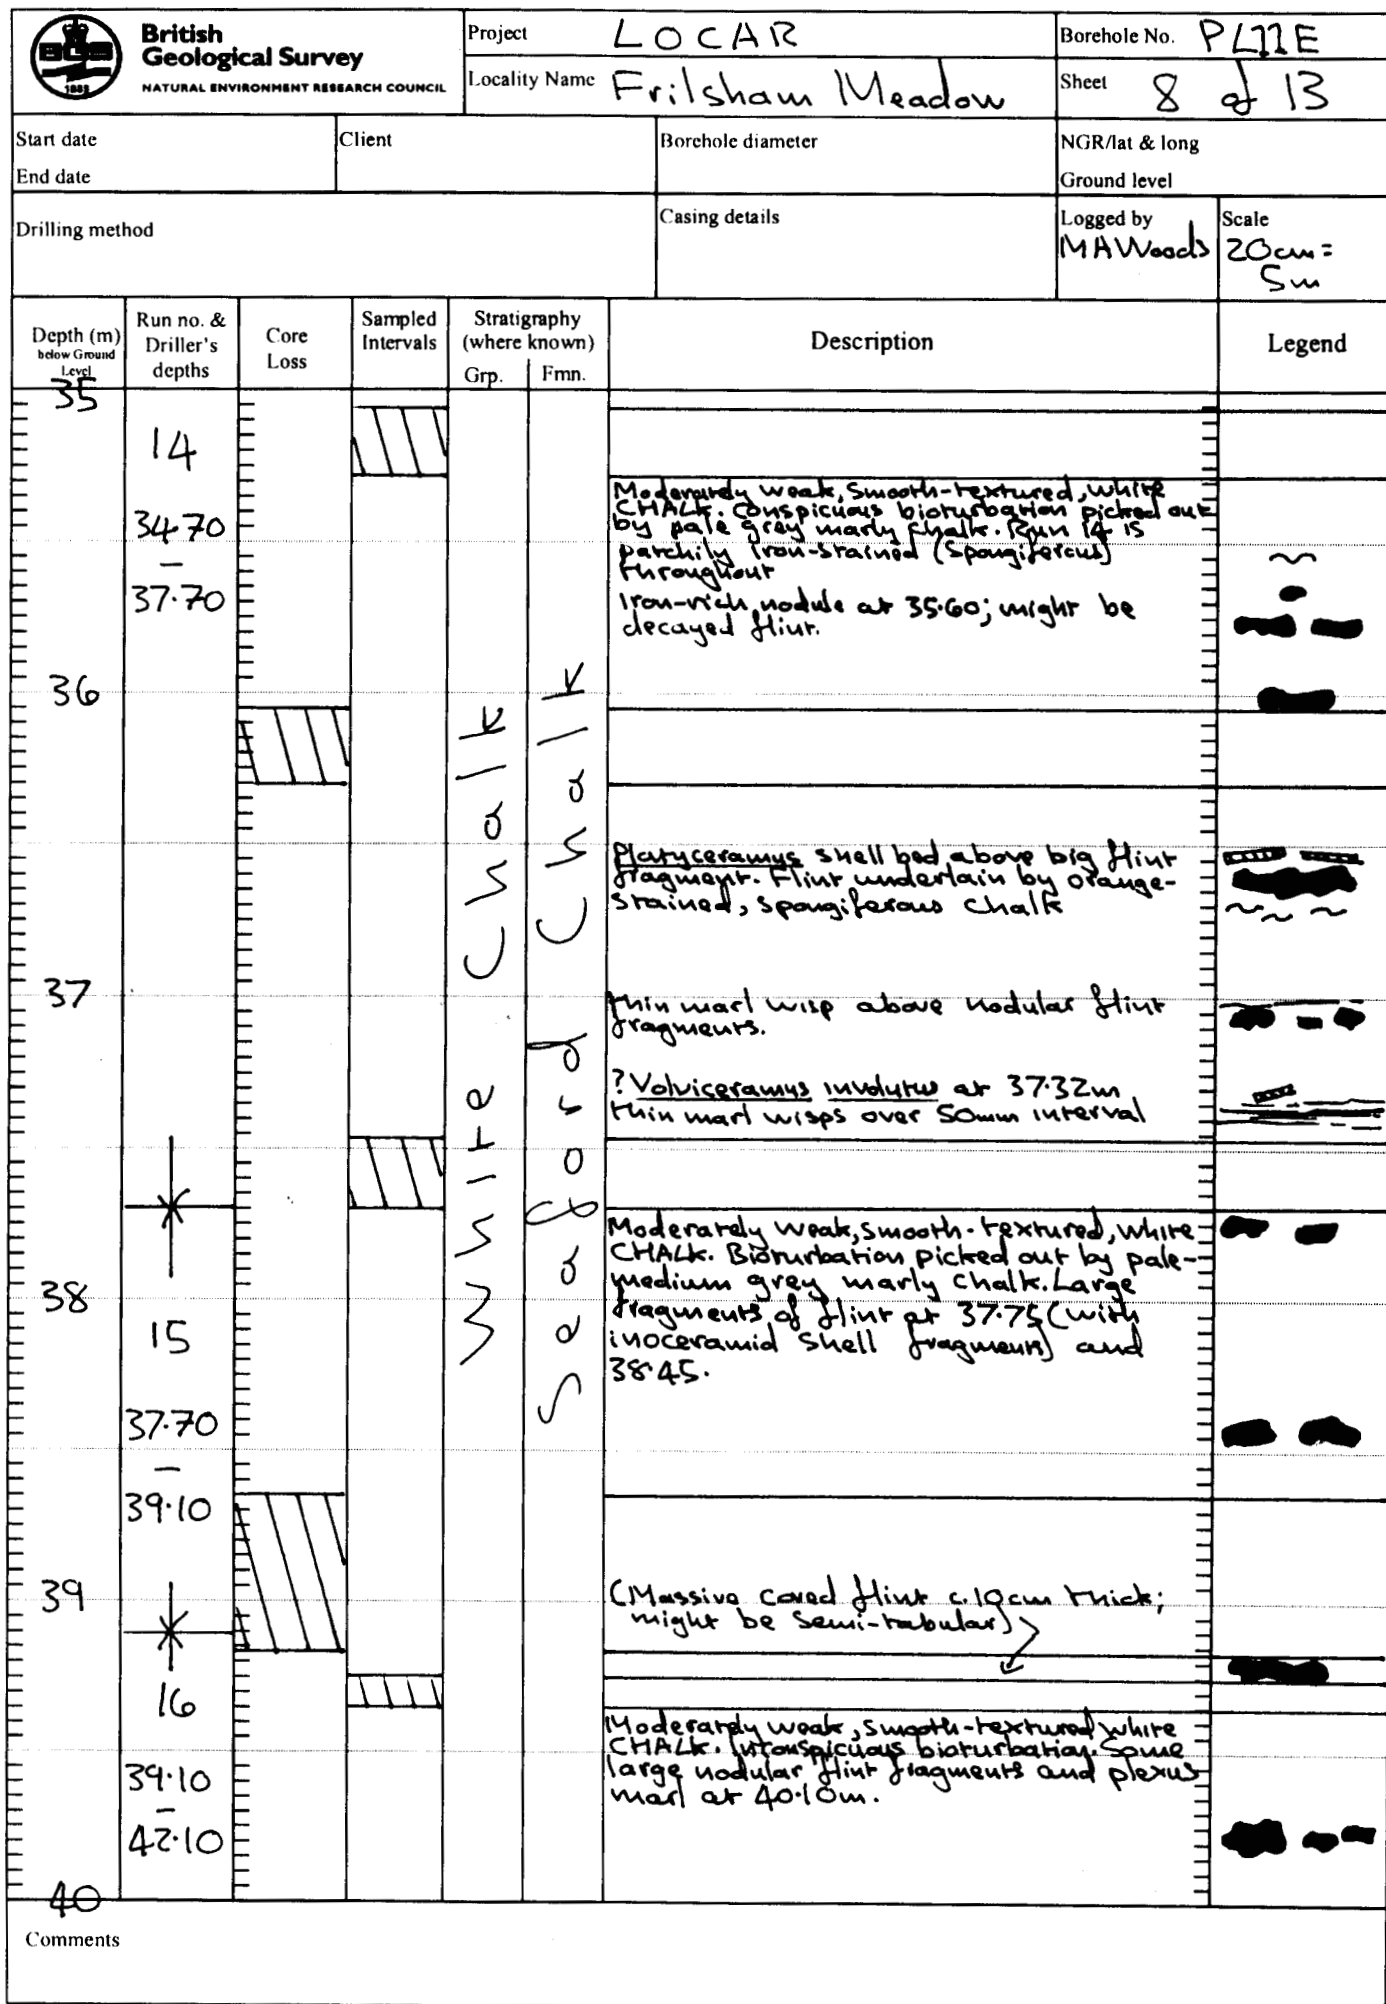 British
Geological Survey
NATURAL ENVIRONMENT RESEARCH COUNCIL
BGS
1835
Project LOCAR
Locality Name Frilsham Meadow
Borehole No. PL11E
Sheet 8 of 13
Start date
End date
Client
Borehole diameter
NGR/lat & long
Ground level
Drilling method
Casing details
Logged by
MAWoods
Scale
20cm =
5m
Depth (m)
below Ground
Level
Run no. &
Driller's
depths
Core
Loss
Sampled
Intervals
Stratigraphy
(where known)
Grp. Fmn.
Description
Legend
35
14
34.70
–
37.70
36
37
38
15
37.70
–
39.10
39
16
39.10
–
42.10
40
White Chalk
Seaford Chalk
Moderately weak, smooth-textured, white
CHALK. Conspicuous bioturbation picked out
by pale grey marly chalk. Run 14 is
patchily iron-stained (spongiferous)
throughout
Iron-rich nodule at 35.60; might be
decayed flint.
Platyceramus shell bed above big flint
fragment. Flint underlain by orange-
stained, spongiferous chalk
Thin marl wisp above nodular flint
fragments.
? Volviceramus involutus at 37.32m
thin marl wisps over 50mm interval
Moderately weak, smooth-textured, white
CHALK. Bioturbation picked out by pale-
medium grey marly chalk. Large
fragments of flint at 37.75 (with
inoceramid shell fragments) and
38.45.
(Massive cored flint c.10cm thick;
might be semi-tabular)
Moderately weak, smooth-textured white
CHALK. Inconspicuous bioturbation. Some
large nodular flint fragments and plexus
marl at 40.10m.
Comments